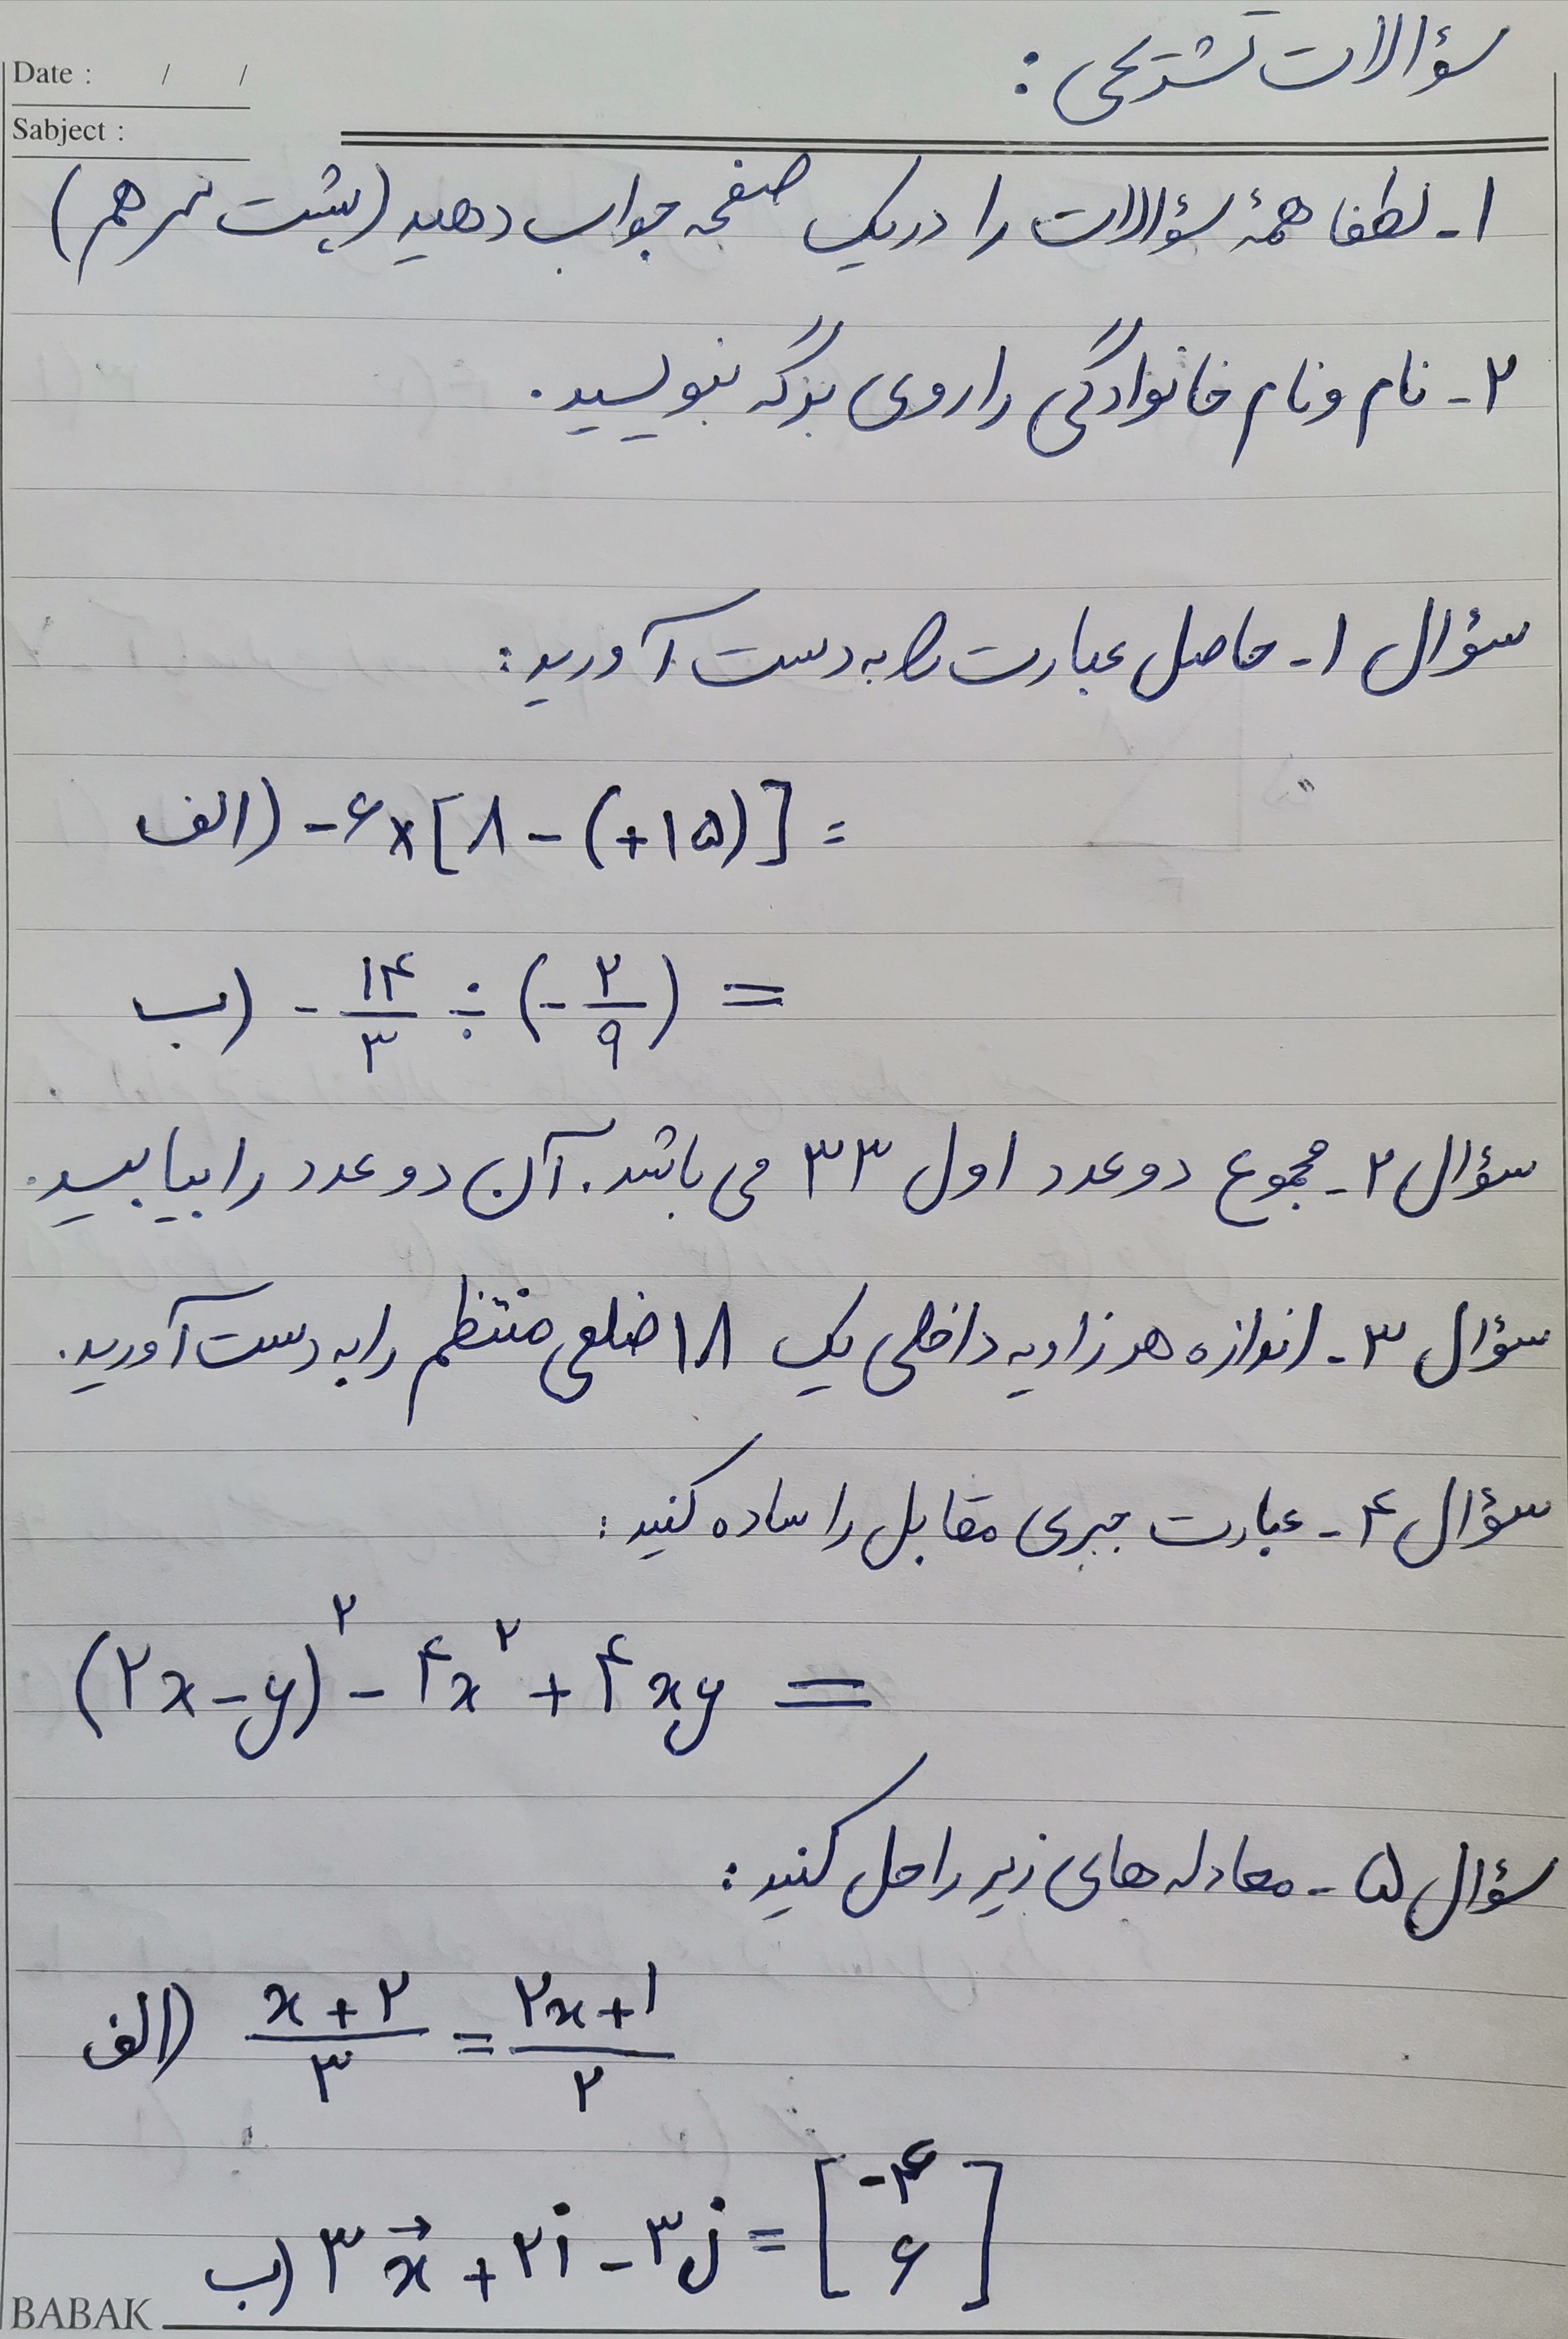 سؤالات تشریحی :
Date : / /
Sabject :
۱- لطفا همهٔ سؤالات را در یک صفحه جواب دهید (پشت سر هم)
۲- نام و نام خانوادگی را روی برگه بنویسید.
سؤال ۱- حاصل عبارت را به دست آورید :
الف) -۶×[۸-(+۱۵)] =
ب) -۱۴/۳ ÷ (-۲/۹) =
سؤال ۲- مجموع دو عدد اول ۳۳ می باشد. آن دو عدد را بیابید.
سؤال ۳- اندازه هر زاویه داخلی یک ۱۸ ضلعی منتظم را به دست آورید.
سؤال ۴- عبارت جبری مقابل را ساده کنید :
(۲x-y)^۲ - ۴x^۲ + ۴xy =
سؤال ۵- معادله های زیر را حل کنید :
الف) (x+۲)/۳ = (۲x+۱)/۲
ب) ۳x⃗ + ۲i - ۳j = [-۴ ۶]
BABAK